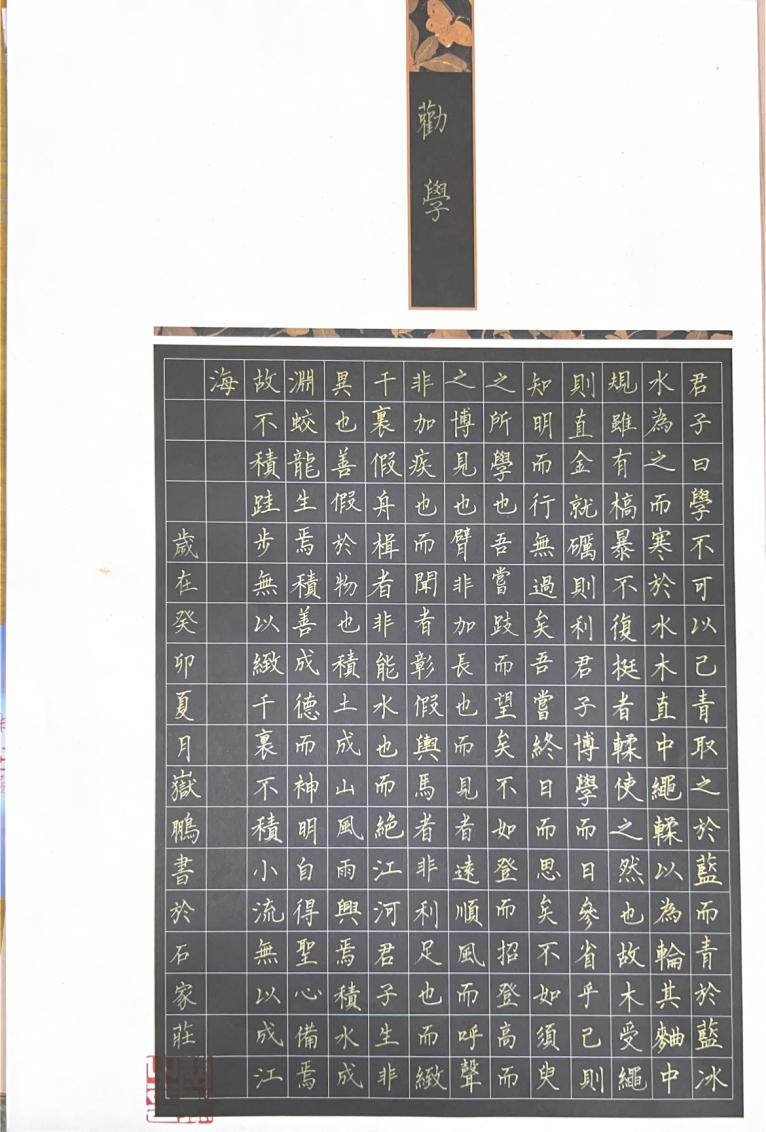 勸學
君子曰學不可以己青取之於藍而青於藍冰
水為之而寒於水木直中繩輮以為輪其麯中
規雖有槁暴不復挺者輮使之然也故木受繩
則直金就礪則利君子博學而日參省乎己則
知明而行無過矣吾嘗終日而思矣不如須臾
之所學也吾嘗跂而望矣不如登而招登高而
之博見也臂非加長也而見者遠順風而呼聲
非加疾也而聞者彰假輿馬者非利足也而緻
千裏假舟楫者非能水也而絕江河君子生非
異也善假於物也積土成山風雨興焉積水成
淵蛟龍生焉積善成德而神明自得聖心備焉
故不積跬步無以緻千裏不積小流無以成江
海
歲在癸卯夏月嶽鵬書於石家莊